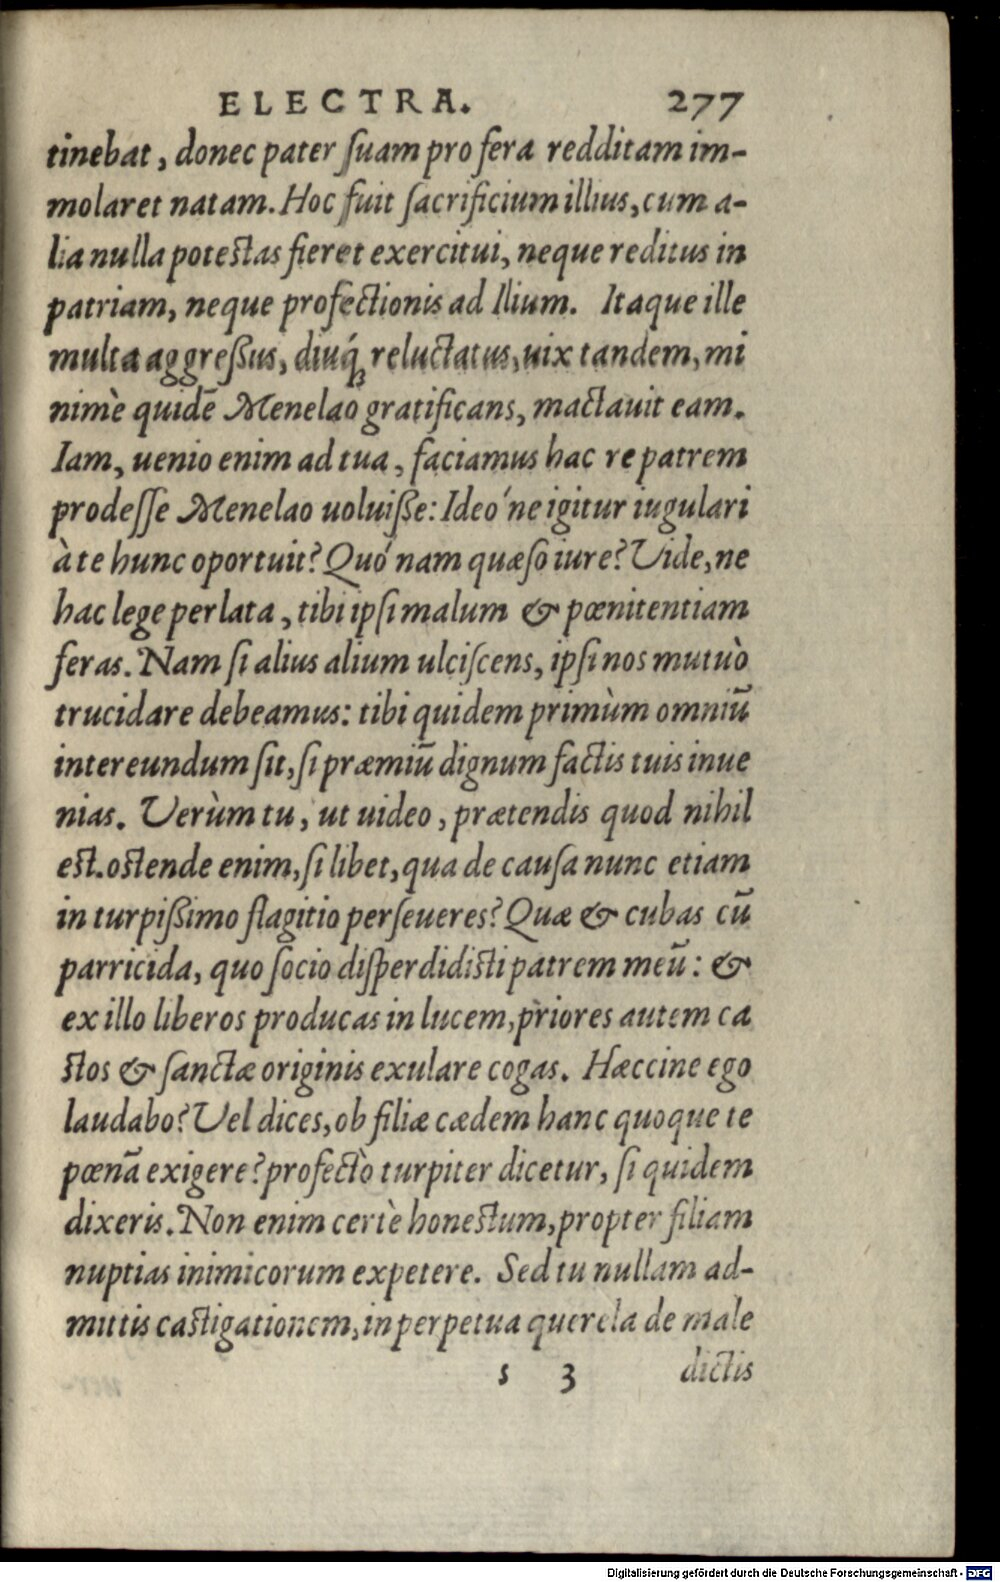 ELECTRA. 277
tinebat, donec pater ſuam pro fera redditam im-
molaret natam. Hoc fuit ſacrificium illius, cum a-
lia nulla poteſtas fieret exercitui, neque reditus in
patriam, neque profectionis ad Ilium. Itaque ille
multa aggreßus, diuq́ꝫ reluctatus, uix tandem, mi
nimè quidẽ Menelao gratificans, mactauit eam.
Iam, uenio enim ad tua, faciamus hac re patrem
prodeſſe Menelao uoluiße: Ideó ne igitur iugulari
à te hunc oportuit? Quó nam quæſo iure? Vide, ne
hac lege perlata, tibi ipſi malum & pœnitentiam
feras. Nam ſi alius alium ulciſcens, ipſi nos mutuò
trucidare debeamus: tibi quidem primùm omniũ
intereundum ſit, ſi præmiũ dignum factis tuis inue
nias. Verùm tu, ut uideo, prætendis quod nihil
eſt. oſtende enim, ſi libet, qua de cauſa nunc etiam
in turpißimo flagitio perſeueres? Quæ & cubas cũ
parricida, quo ſocio diſperdidiſti patrem meũ: &
ex illo liberos producas in lucem, priores autem ca
ſtos & ſanctæ originis exulare cogas. Hæccine ego
laudabo? Vel dices, ob filiæ cædem hanc quoque te
pœnã exigere? profectò turpiter dicetur, ſi quidem
dixeris. Non enim certè honeſtum, propter filiam
nuptias inimicorum expetere. Sed tu nullam ad-
mittis caſtigationem, in perpetua querela de male
s 3 dictis
Digitalisierung gefördert durch die Deutsche Forschungsgemeinschaft - DFG